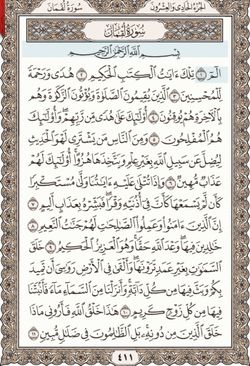 الجُزْءُ الحَادِي وَالعِشْرُونَ سُورَةُ لُقْمَانَ
سُورَةُ لُقْمَانَ
بِسْمِ ٱللَّهِ ٱلرَّحْمَٰنِ ٱلرَّحِيمِ
الٓمٓ ١ تِلْكَ ءَايَٰتُ ٱلْكِتَٰبِ ٱلْحَكِيمِ ٢ هُدًى وَرَحْمَةً
لِّلْمُحْسِنِينَ ٣ ٱلَّذِينَ يُقِيمُونَ ٱلصَّلَوٰةَ وَيُؤْتُونَ ٱلزَّكَوٰةَ وَهُم
بِٱلْأَخِرَةِ هُمْ يُوقِنُونَ ٤ أُوْلَٰٓئِكَ عَلَىٰ هُدًى مِّن رَّبِّهِمْ وَأُوْلَٰٓئِكَ
هُمُ ٱلْمُفْلِحُونَ ٥ وَمِنَ ٱلنَّاسِ مَن يَشْتَرِى لَهْوَ ٱلْحَدِيثِ
لِيُضِلَّ عَن سَبِيلِ ٱللَّهِ بِغَيْرِ عِلْمٍ وَيَتَّخِذَهَا هُزُوًا أُوْلَٰٓئِكَ لَهُمْ
عَذَابٌ مُّهِينٌ ٦ وَإِذَا تُتْلَىٰ عَلَيْهِ ءَايَٰتُنَا وَلَّىٰ مُسْتَكْبِرًا
كَأَن لَّمْ يَسْمَعْهَا كَأَنَّ فِىٓ أُذُنَيْهِ وَقْرًا فَبَشِّرْهُ بِعَذَابٍ أَلِيمٍ ٧
إِنَّ ٱلَّذِينَ ءَامَنُواْ وَعَمِلُواْ ٱلصَّٰلِحَٰتِ لَهُمْ جَنَّٰتُ ٱلنَّعِيمِ ٨
خَٰلِدِينَ فِيهَا وَعْدَ ٱللَّهِ حَقًّا وَهُوَ ٱلْعَزِيزُ ٱلْحَكِيمُ ٩ خَلَقَ
ٱلسَّمَٰوَٰتِ بِغَيْرِ عَمَدٍ تَرَوْنَهَا وَأَلْقَىٰ فِى ٱلْأَرْضِ رَوَٰسِىَ أَن تَمِيدَ
بِكُمْ وَبَثَّ فِيهَا مِن كُلِّ دَآبَّةٍ وَأَنزَلْنَا مِنَ ٱلسَّمَآءِ مَآءً فَأَنۢبَتْنَا
فِيهَا مِن كُلِّ زَوْجٍ كَرِيمٍ ١٠ هَٰذَا خَلْقُ ٱللَّهِ فَأَرُونِى مَاذَا
خَلَقَ ٱلَّذِينَ مِن دُونِهِۦ بَلِ ٱلظَّٰلِمُونَ فِى ضَلَٰلٍ مُّبِينٍ ١١
٤١١